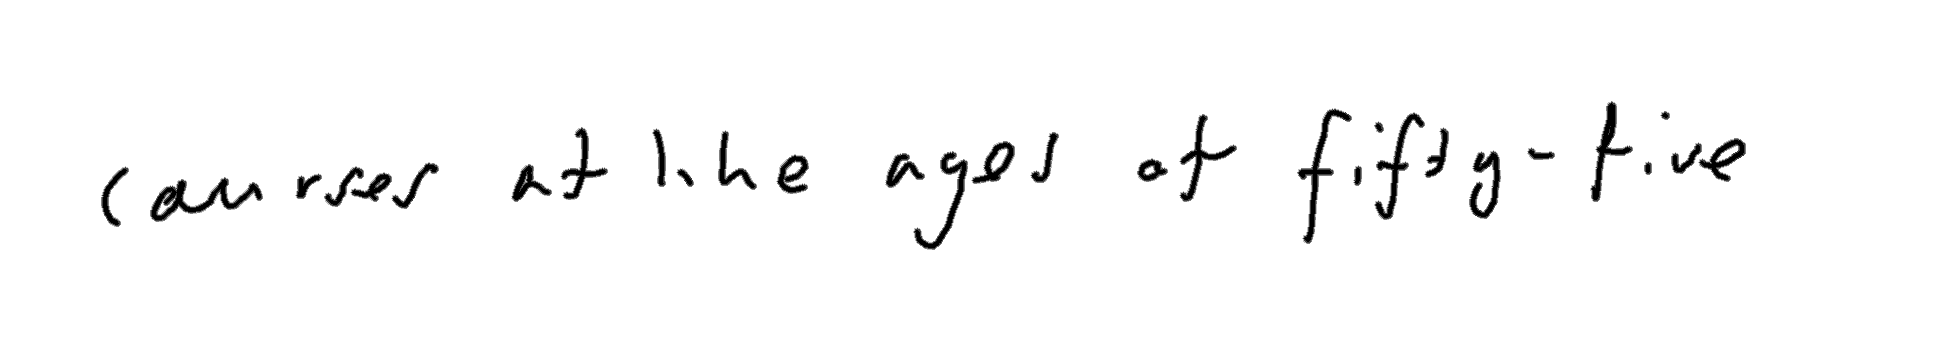 courses at like ages of fifty-five